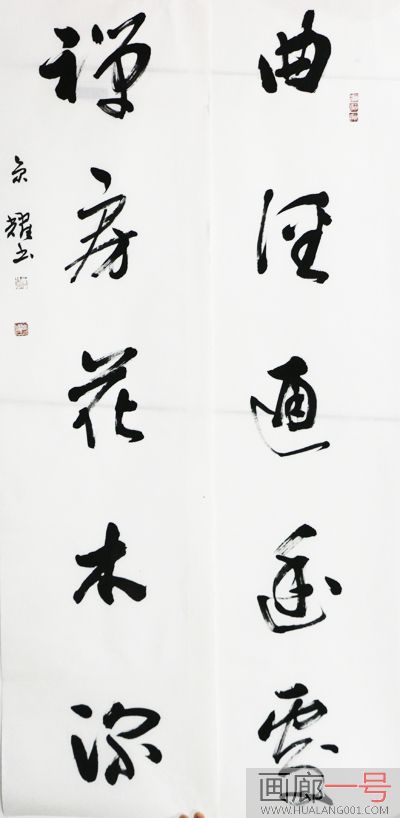 曲徑通幽處
禅房花木深
耀书
画廊一号
WWW.HUALANG001.COM